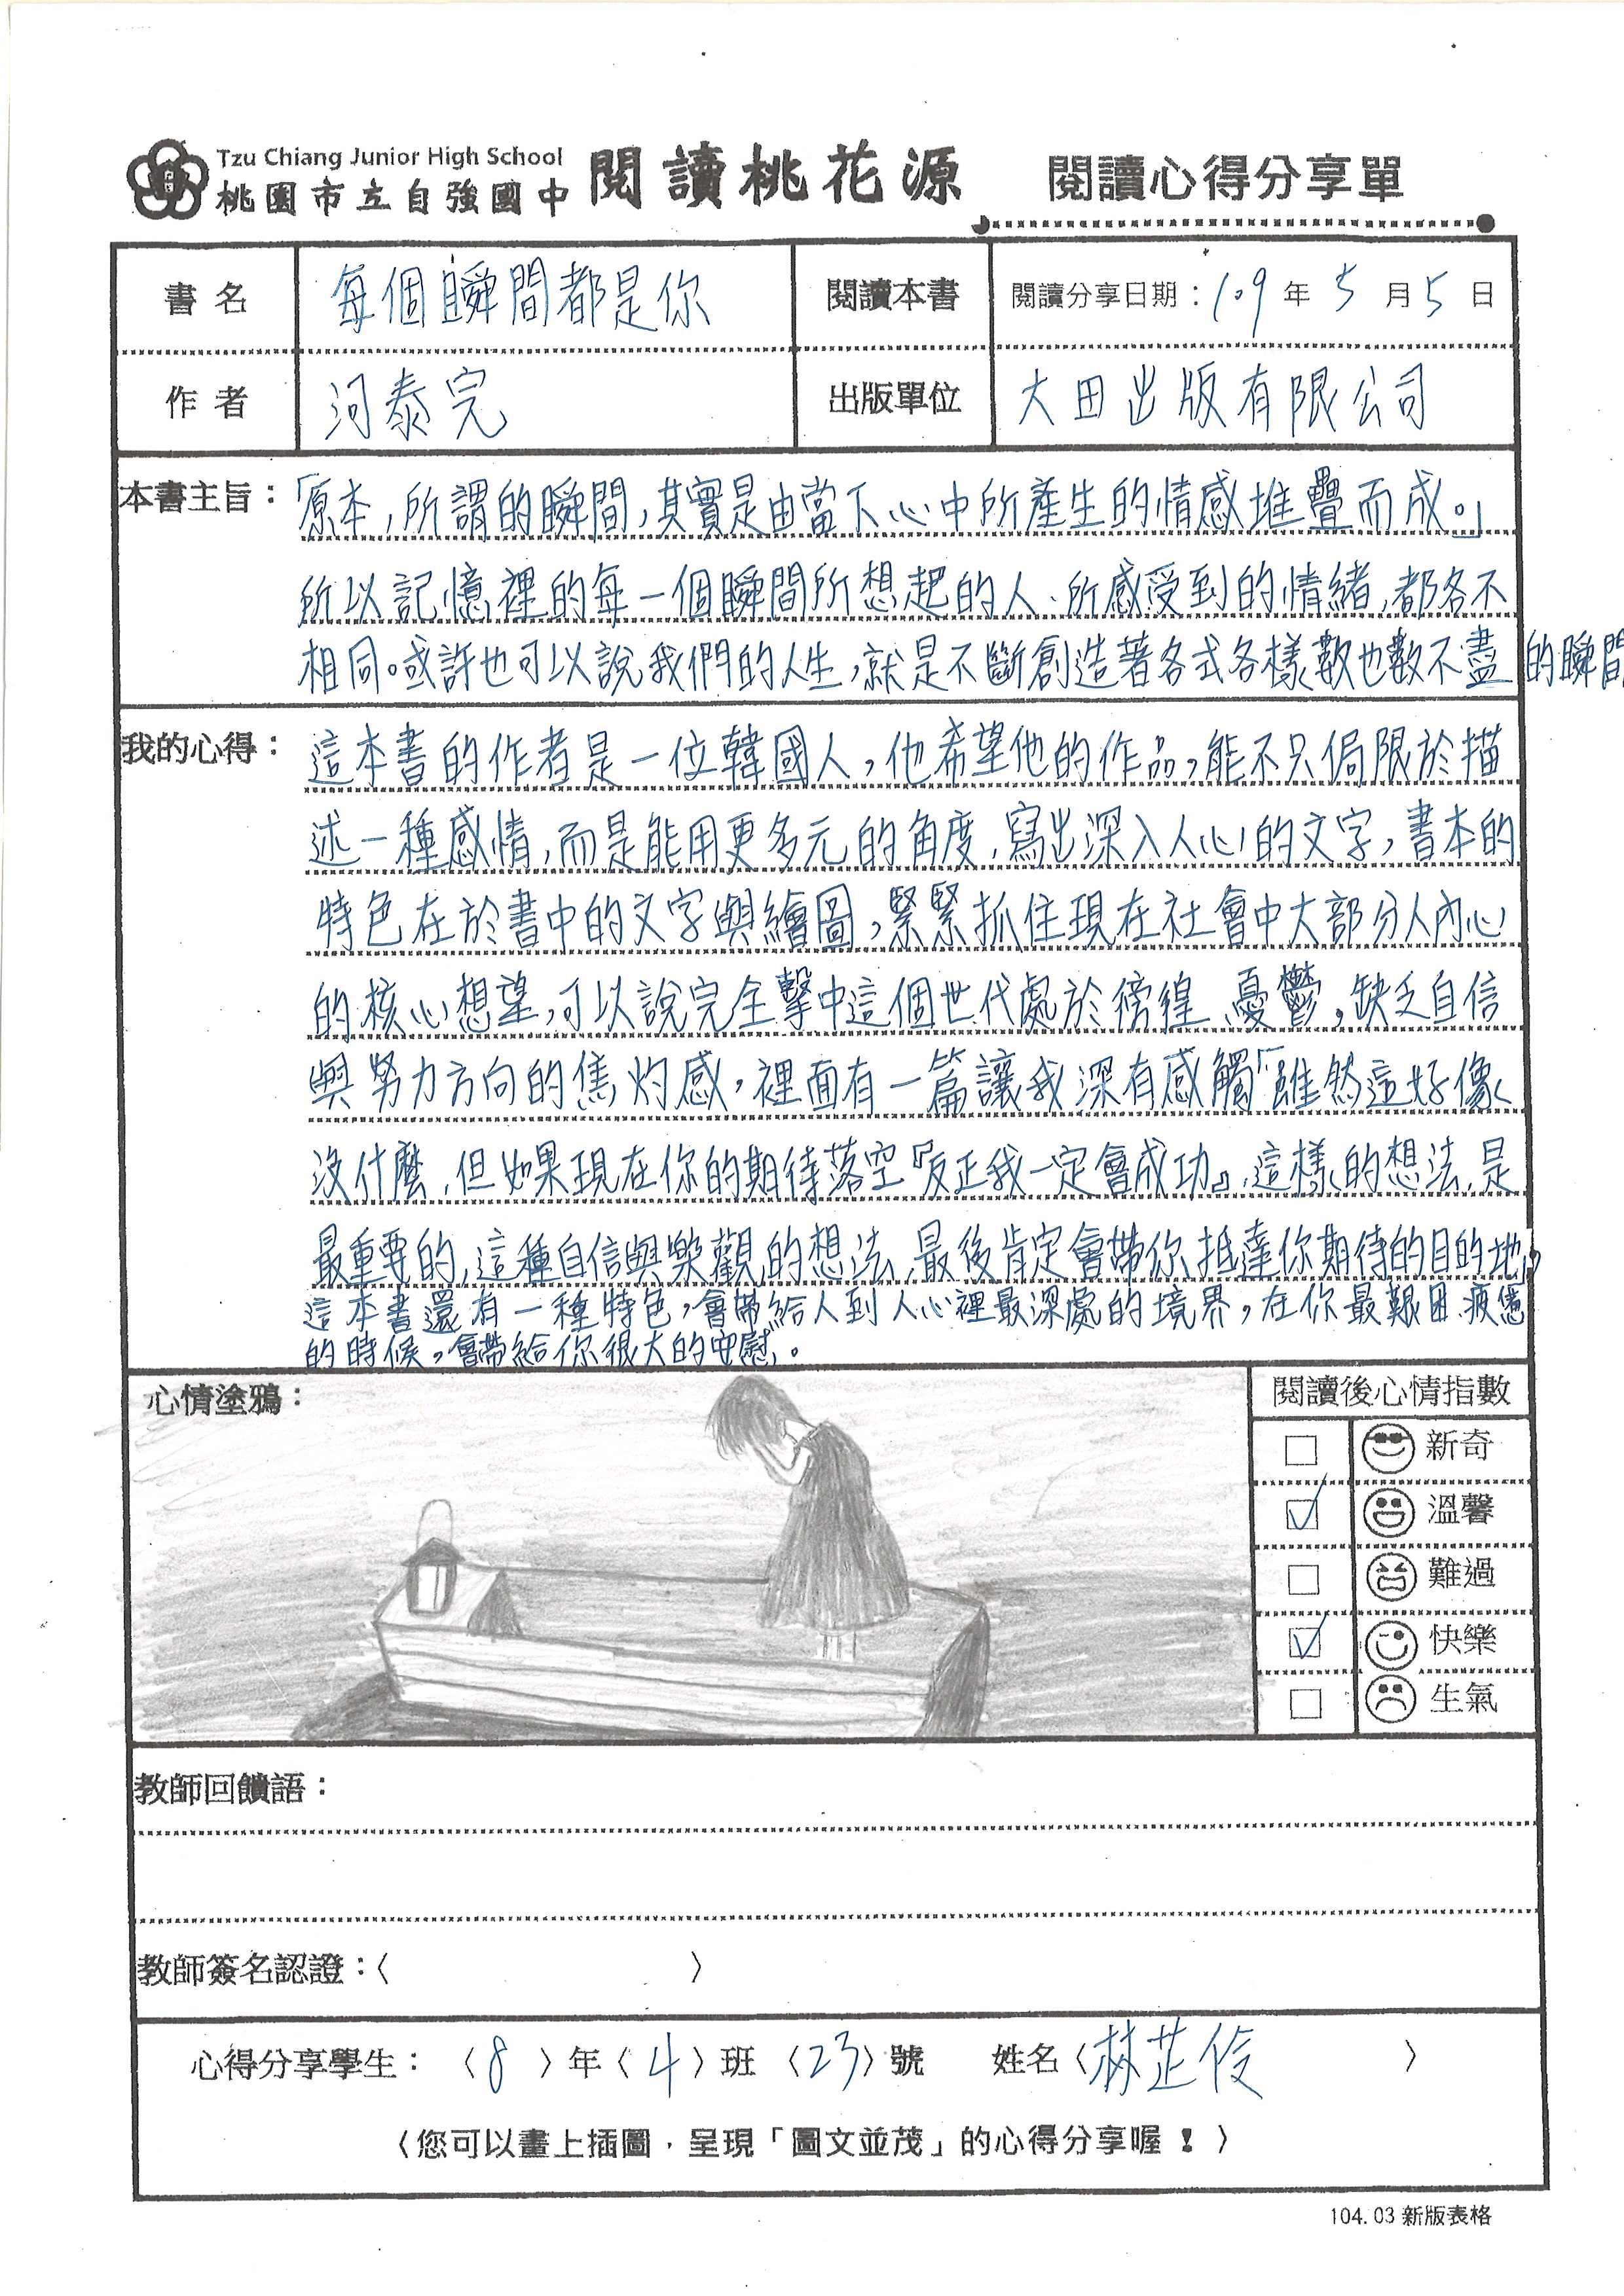 Tzu Chiang Junior High School
桃園市立自強國中 閱讀桃花源 閱讀心得分享單
書名 每個瞬間都是你 閱讀本書 閱讀分享日期：109年5月5日
作者 河泰完 出版單位 大田出版有限公司
本書主旨：「原本,所謂的瞬間,其實是由當下心中所產生的情感堆疊而成。」
所以記憶裡的每一個瞬間所想起的人、所感受到的情緒,都各不
相同。或許也可以說我們的人生,就是不斷創造著各式各樣數也數不盡的瞬間
我的心得：這本書的作者是一位韓國人,他希望他的作品,能不只侷限於描
述一種感情,而是能用更多元的角度,寫出深入人心的文字,書本的
特色在於書中的文字與繪圖,緊緊抓住現在社會中大部分人內心
的核心想望,可以說完全擊中這個世代處於徬徨、憂鬱,缺乏自信
與努力方向的焦灼感,裡面有一篇讓我深有感觸「雖然這好像
沒什麼,但如果現在你的期待落空『反正我一定會成功』,這樣的想法,是
最重要的,這種自信與樂觀的想法,最後肯定會帶你抵達你期待的目的地」,
這本書還有一種特色,會帶給人到人心裡最深處的境界,在你最艱困、疲憊
的時候,會帶給你很大的安慰。
心情塗鴉： 閱讀後心情指數
新奇
溫馨
難過
快樂
生氣
教師回饋語：
教師簽名認證：〈 〉
心得分享學生：〈8〉年〈4〉班〈23〉號 姓名〈林芷伶〉
〈您可以畫上插圖，呈現「圖文並茂」的心得分享喔！〉
104.03 新版表格